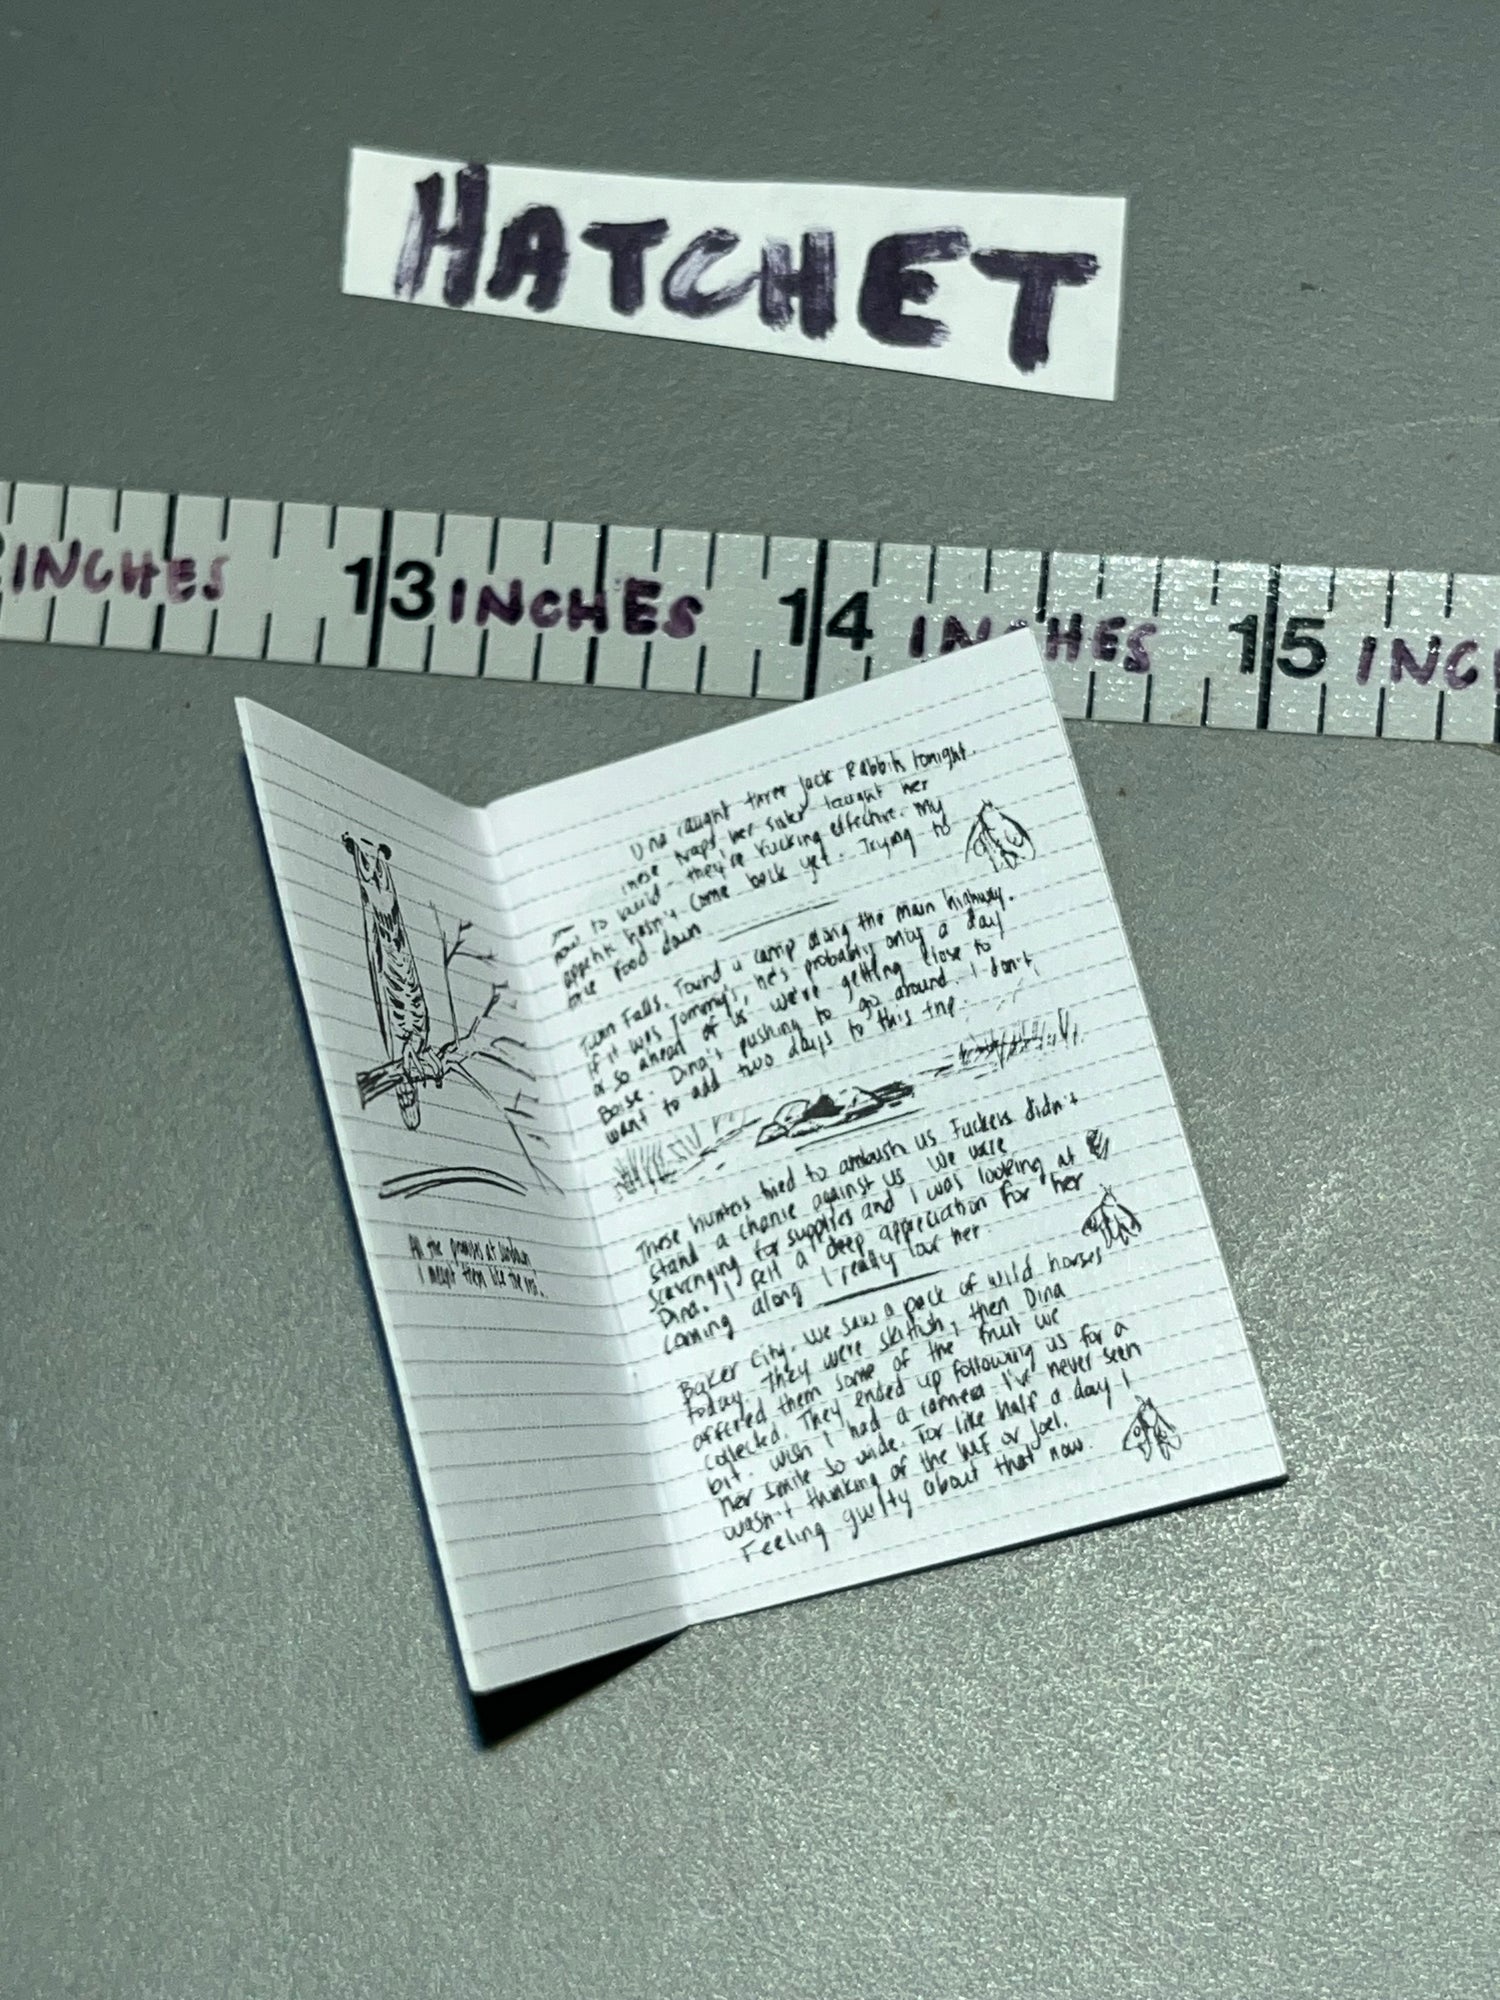 HATCHET
INCHES 13 INCHES 14 INCHES 15 INC
All the promises at sundown
I meant them like the rest.
Dina caught three Jack Rabbits tonight.
These traps her sister taught her
how to build - they're fucking effective. My
appetite hasn't come back yet. Trying to
force food down
Twin Falls. Found a camp along the main highway.
If it was Tommy's, he's probably only a day
or so ahead of us. We're getting close to
Boise. Dina's pushing to go around. I don't
want to add two days to this trip.
These hunters tried to ambush us. Fuckers didn't
stand a chance against us. We were
scavenging for supplies and I was looking at
Dina. I felt a deep appreciation for her
coming along. I really love her.
Baker City. We saw a pack of wild horses
today. They were skittish, then Dina
offered them some of the fruit we
collected. They ended up following us for a
bit. Wish I had a camera. I've never seen
her smile so wide. For like half a day I
wasn't thinking of the WLF or Joel.
Feeling guilty about that now.